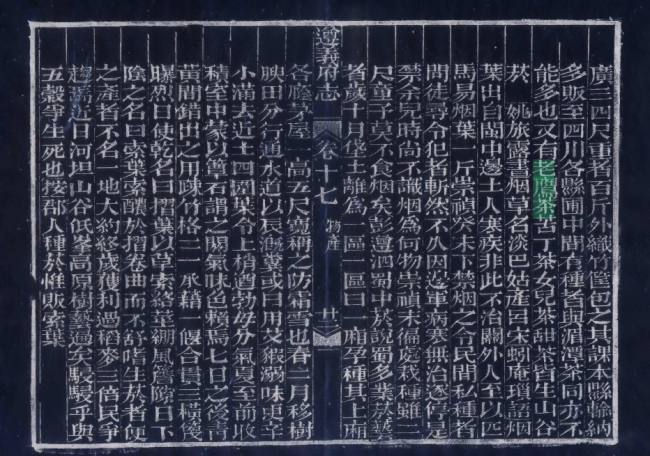 廣三四尺重者百斤外織竹筐包之其課本縣輸納
多販至四川各縣圃中間有種者與湄潭茶同亦不
能多也又有老鷹茶苦丁茶女兒茶甜茶皆生山谷
菸 姚旅露書烟草名淡巴姑產因宋蚓庵瑣語烟
葉出自閩中邊土人寒疾非此不治關外人至以匹
馬易烟葉一斤崇禎癸未下禁烟之令民間私種者
問徒尋令犯者斬然不久因邊軍病寒無治遂停是
禁余兒時尚不識烟為何物崇禎末徧處栽種雖三
尺童子莫不食烟矣彭遵泗蜀中菸說蜀多業菸藝
者歲十月垡土離為一區一區曰一廂孕種其上廂
遵義府志 卷十七 物產
各覆茅屋一高五尺寬稱之防霜雪也春二月移樹
映田分行通水道以長溉糞或日用芟猳溺味更辛
小滿去近土四圍葉令上梢遒勃毋分氣夏至前收
積室中蒙以簟石謂之罨氣味色賴焉七日之後青
黃間錯出之用疎竹格二一承藉一偃合貫三橫篾
曝烈日使乾名曰摺葉以草索絡葉綳風簷隙日下
陰之名曰索葉索釀於摺卷曲而不舒嗜生菸者便
之產者不名一地大約終歲獲利過稻麥三倍民爭
趨焉近日河坦山谷低峯高原樹藝遍矣駸駸乎與
五穀爭生死也按郡人種菸惟販索葉